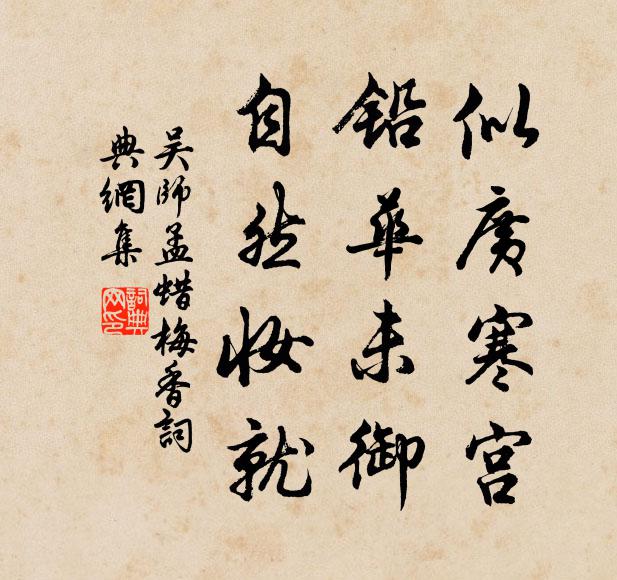 似廣寒宮
鉛華未御
自然妝就
吴師孟蜡梅香詞
典網集
詞典網印